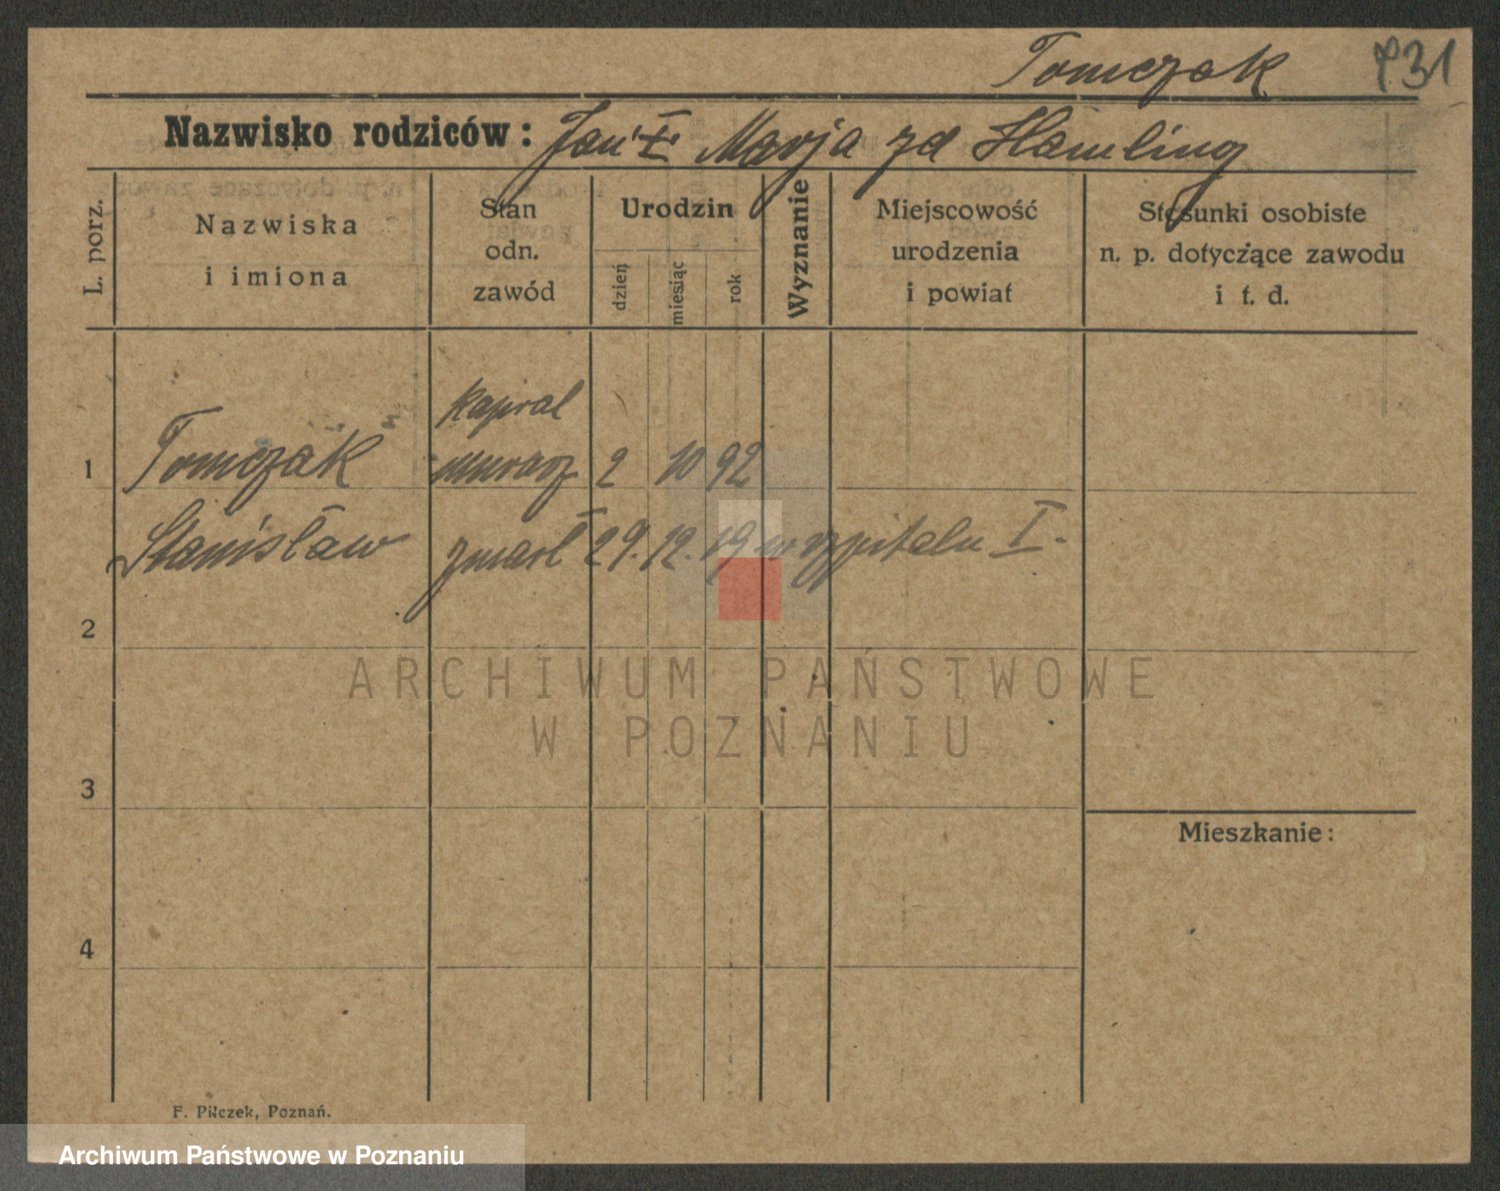 Tomczak 731
Nazwisko rodziców: Jan i Marja zd Hamling
L. porz.
Nazwiska
i imiona
Stan
odn.
zawód
Urodzin
dzień
miesiąc
rok
Wyznanie
Miejscowość
urodzenia
i powiat
Stosunki osobiste
n. p. dotyczące zawodu
i t. d.
kapral
1 Tomczak murarz 2 10 92
Stanisław zmarł 29. 12. 19 w szpitalu I.
2
ARCHIWUM PAŃSTWOWE
W POZNANIU
3
Mieszkanie:
4
F. Pilczek, Poznań.
Archiwum Państwowe w Poznaniu